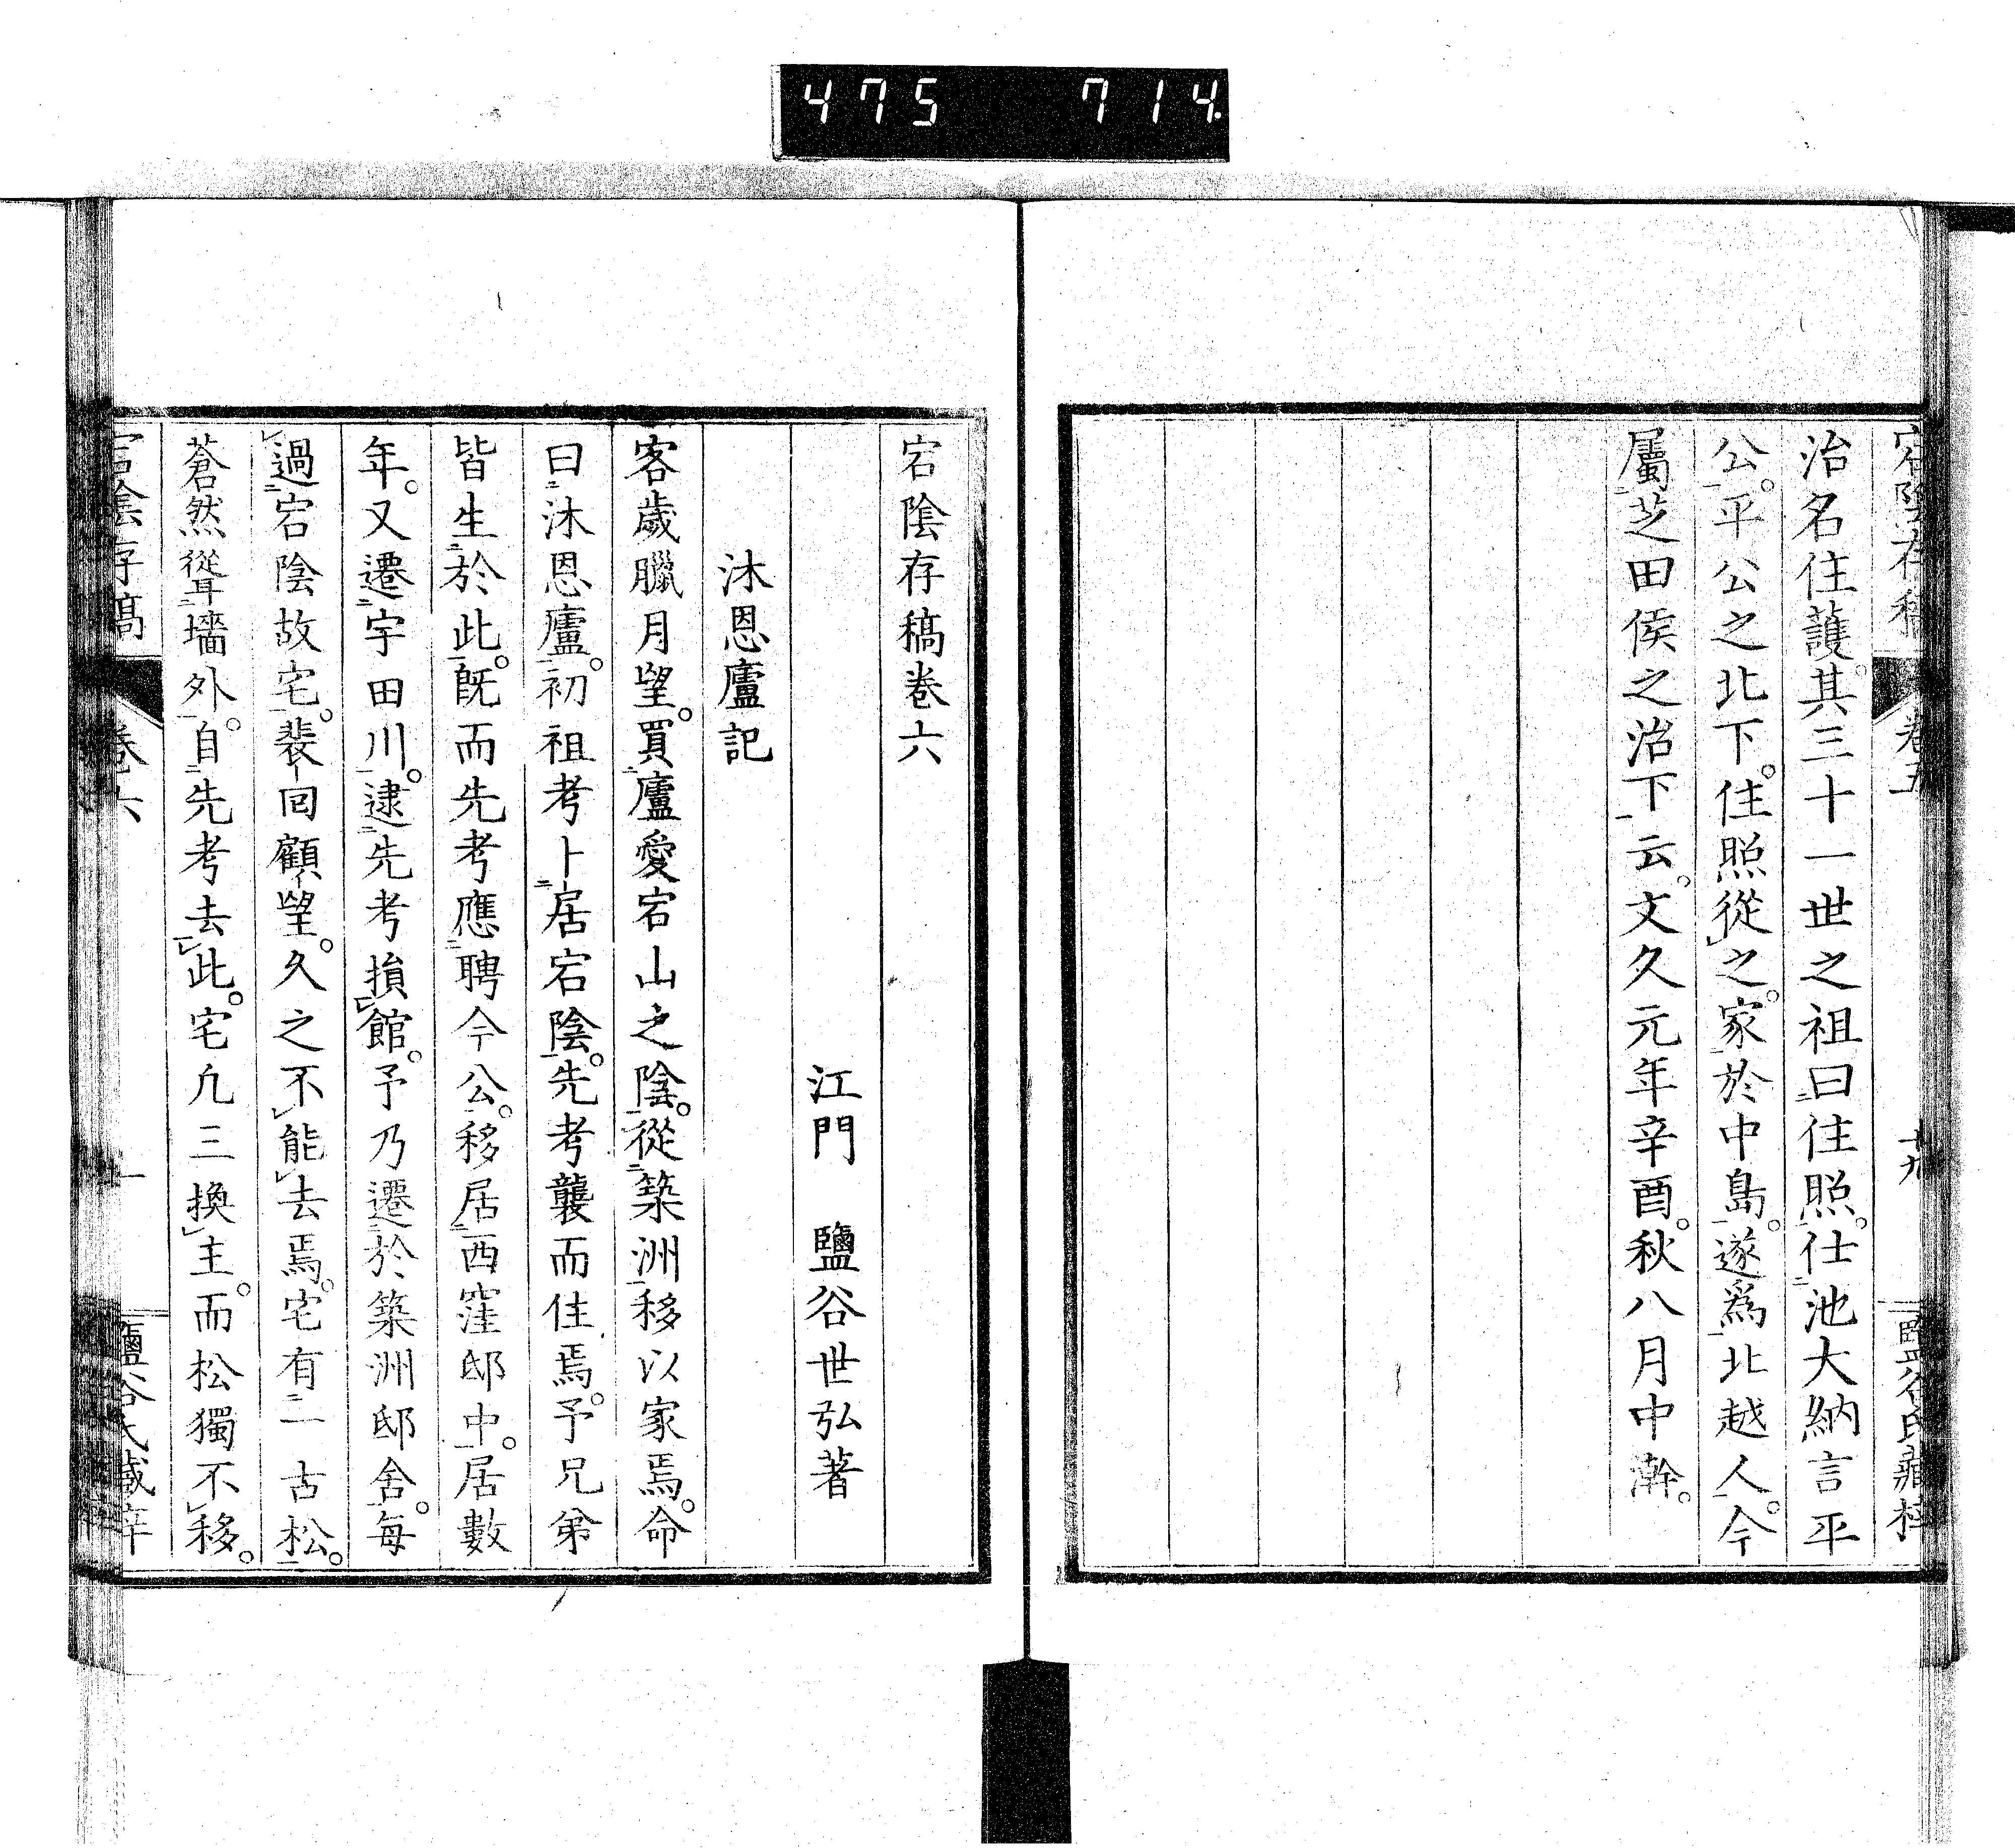 475 714
宕陰存稿 卷五 廿九 鹽谷氏藏梓
治名住護。其三十一世之祖曰住照。仕池大納言平
公。平公之北下。住照從之。家於中島。遂爲北越人。今
屬芝田侯之治下云。文久元年辛酉。秋八月中澣。
宕陰存稿卷六
江門 鹽谷世弘著
沐恩廬記
客歲臘月望。買廬愛宕山之陰。從築洲移以家焉。命
曰沐恩廬。初祖考卜居宕陰。先考襲而住焉。予兄弟
皆生於此。旣而先考應聘今公。移居西窪邸中。居數
年。又遷宇田川。逮先考損館。予乃遷於築洲邸舍。每
過宕陰故宅。裴回顧望。久之不能去焉。宅有二古松。
蒼然聳墻外。自先考去此。宅凡三換主。而松獨不移。
宕陰存稿 卷六 一 鹽谷氏藏梓